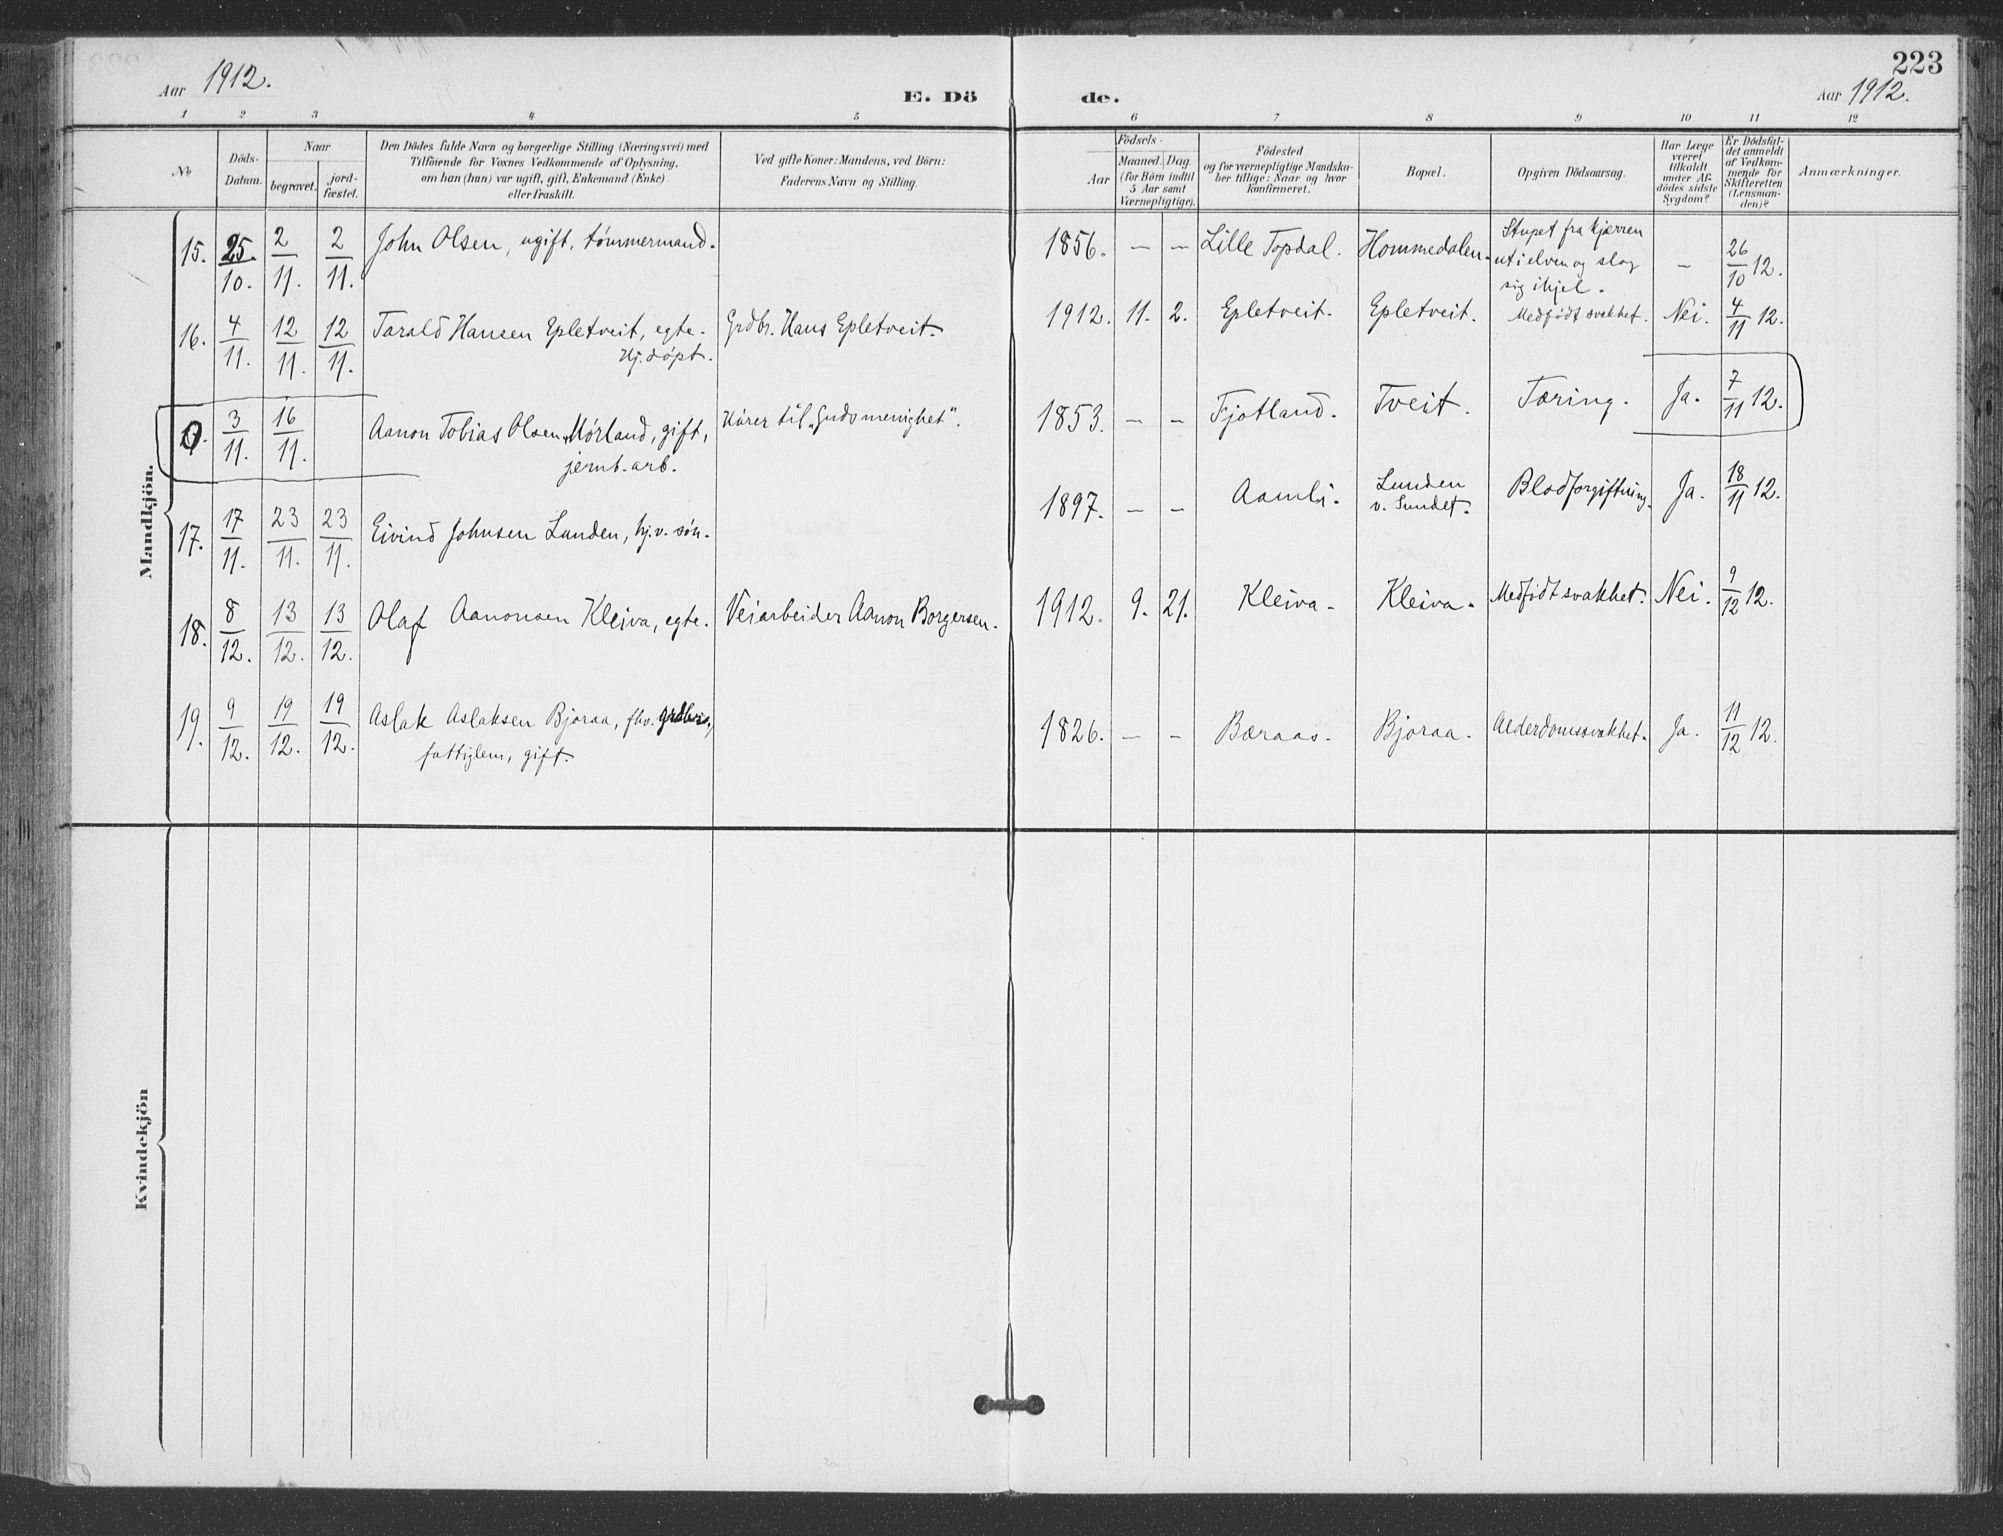 223
Aar 1912.
E. Dö de.
Aar 1912.
1 2 3 4 5 6 7 8 9 10 11 12
No
Döds-
Datum.
Naar
begravet.
jord-
fæstet.
Den Dödes fulde Navn og borgerlige Stilling (Næringsvei) med
Tilföiende for Voxnes Vedkommende af Oplysning,
om han (hun) var ugift, gift, Enkemand (Enke)
eller fraskilt.
Ved gifte Koner: Mandens, ved Börn:
Faderens Navn og Stilling.
Födsels-
Aar
Maaned. Dag
(for Börn indtil
5 Aar samt
Værnepligtige).
Födested
og for værnepligtige Mandska-
ber tillige: Naar og hvor
konfirmeret.
Bopæl.
Opgiven Dödsaarsag.
Har Læge
været
tilkaldt
under Af-
dödes sidste
Sygdom?
Er Dödsfal-
det anmeldt
af Vedkom-
mende for
Skifteretten
(Lensman-
den)?
Anmærkninger.
Mandkjön.
15. 25/10. 2/11. 2/11. John Olsen, ugift, tømmermand. 1856. — — Lille Topdal. Hommedalen. Stupet fra kjærren
ut i elven og slog
sig ihjel. — 26/10 12.
16. 4/11. 12/11. 12/11. Tarald Hansen Epletveit, egte. Grdbr. Hans Epletveit. 1912. 11. 2. Epletveit. Epletveit. Medfødt svakhet. Nei. 4/11 12.
Hj. døpt.
0. 3/11. 16/11. Aanon Tobias Olsen Mørland, gift, Hører til "Guds menighet". 1853. — — Fjotland. Tveit. Tæring. Ja. 7/11 12.
jernb. arb.
17. 17/11. 23/11. 23/11. Eivind Johnsen Lunden, hj. v. søn. 1897. — — Aamli. Lunden
v. Sundet. Blodforgiftning. Ja. 18/11 12.
18. 8/12. 13/12. 13/12. Olaf Aanonsen Kleiva, egte. Veiarbeider Aanon Borgersen. 1912. 9. 21. Kleiva. Kleiva. Medfødt svakhet. Nei. 9/12 12.
19. 9/12. 19/12. 19/12. Aslak Aslaksen Bjoraa, fhv. grdbr., 1826. — — Bæraas. Bjoraa. Alderdomssvakhet. Ja. 11/12 12.
fattiglem, gift.
Kvindekjön